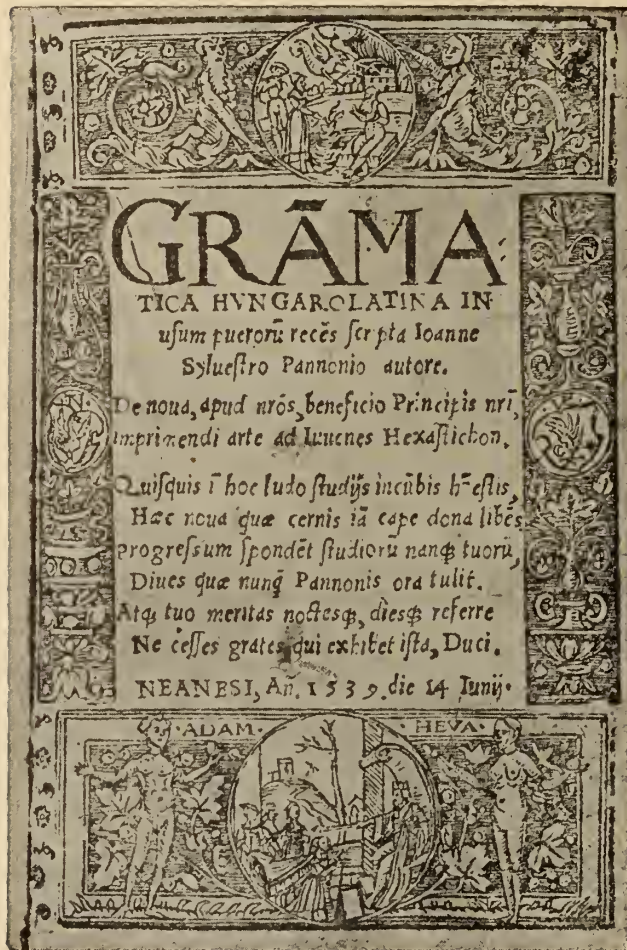 GRÃMA
TICA HVNGAROLATINA IN
uſum puerorũ recẽs ſcripta Ioanne
Sylueſtro Pannonio autore.
De noua, apud nrõs, beneficio Principis nrĩ,
imprimendi arte ad Iuuenes Hexaſtichon.
Quiſquis ĩ hoc ludo ſtudijs incũbis h̃eſtis,
Hæc noua quæ cernis iã cape dona libẽs
progreſſum ſpondẽt ſtudiorũ nanq; tuorũ,
Diues quæ nunq̃ Pannonis ora tulit.
Atq; tuo meritas noctesq;, diesq; referre
Ne ceſſes grates, qui exhibet iſta, Duci.
NEANESI, Añ. 1539, die 14 Iunij.
·ADAM· HEVA·